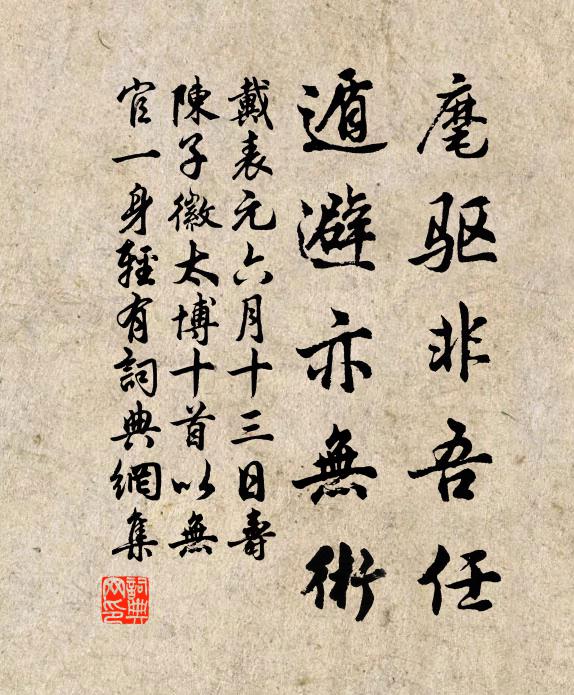 麾驱非吾任
遁避亦無術
戴表元六月十三日壽
陳子徽太博十首以無
官一身輕有詞典網集
詞典网印